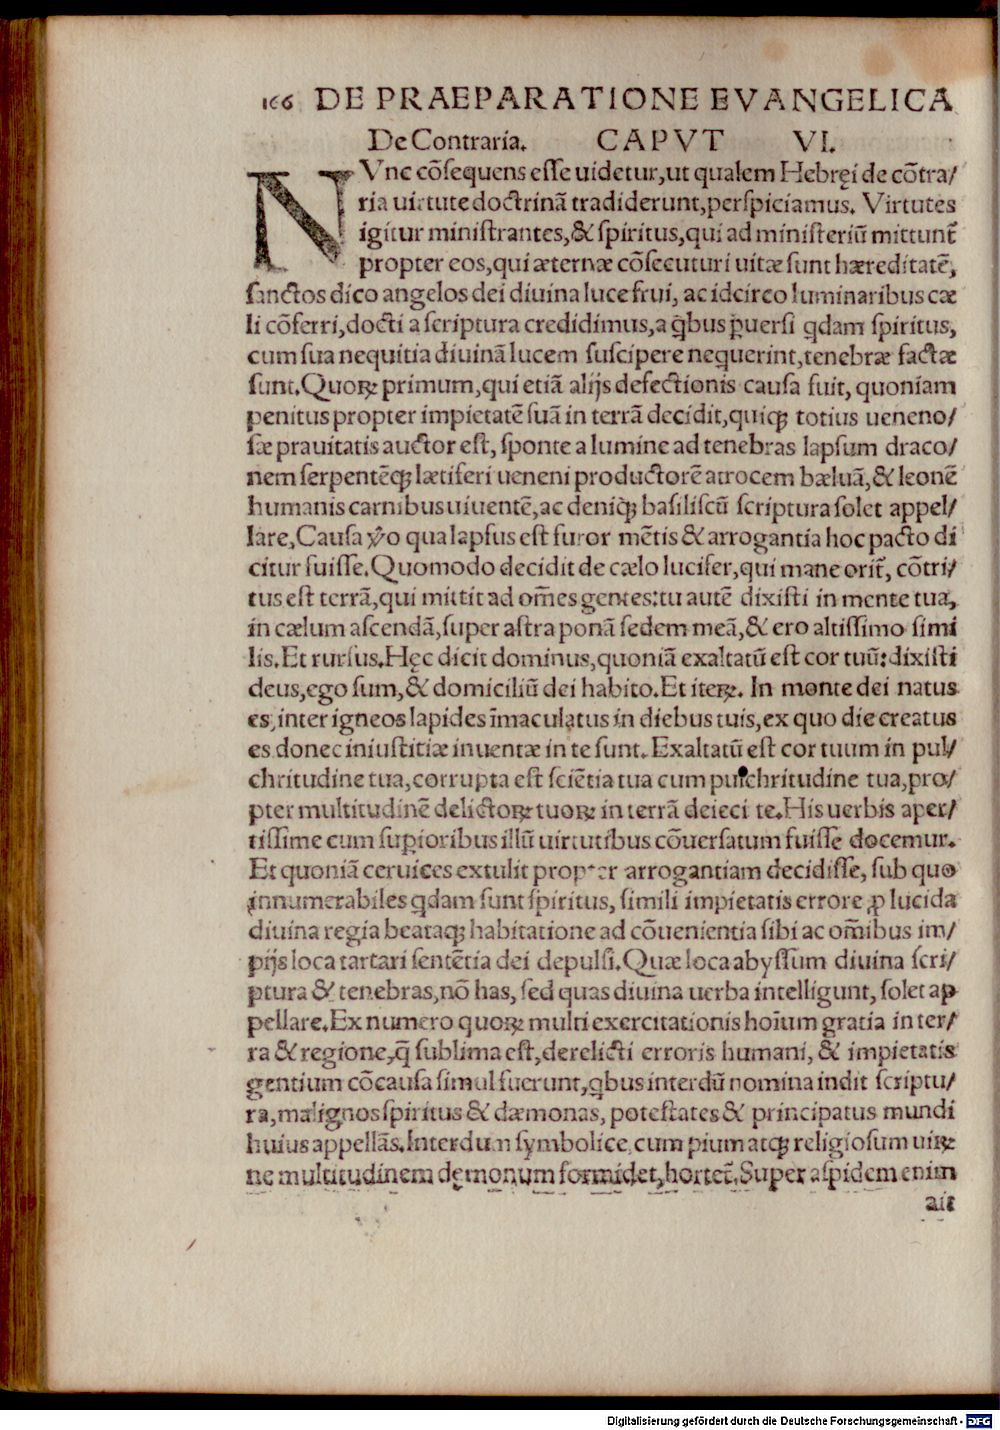 166 DE PRAEPARATIONE EVANGELICA
De Contraria. CAPVT VI.
NVnc cōsequens esse uidetur, ut qualem Hebręi de cōtra/
ria uirtute doctrinā tradiderunt, perspiciamus. Virtutes
igitur ministrantes, & spiritus, qui ad ministeriū mittunt̄
propter eos, qui æternæ cōsecuturi uitæ sunt hæreditatē,
sanctos dico angelos dei diuina luce frui, ac idcirco luminaribus cæ
li cōferri, docti a scriptura credidimus, a ꝗbus ꝑuersi ꝗdam spiritus,
cum sua nequitia diuinā lucem suscipere nequerint, tenebræ factæ
sunt. Quoꝝ primum, qui etiā alijs defectionis causa fuit, quoniam
penitus propter impietatē suā in terrā decidit, quiqꝫ totius ueneno/
sæ prauitatis auctor est, sponte a lumine ad tenebras lapsum draco/
nem serpentēqꝫ lætiferi ueneni productorē atrocem bæluā, & leonē
humanis carnibus uiuentē, ac deniqꝫ basiliscū scriptura solet appel/
lare, Causa ꝟo qua lapsus est furor mētis & arrogantia hoc pacto di
citur fuisse. Quomodo decidit de cælo lucifer, qui mane orit̄, cōtri/
tus est terrā, qui mittit ad om̄es gentes: tu autē dixisti in mente tua,
in cælum ascendā, super astra ponā sedem meā, & ero altissimo simi
lis. Et rursus. Hęc dicit dominus, quoniā exaltatū est cor tuū: dixisti
deus, ego sum, & domiciliū dei habito. Et iteꝝ. In monte dei natus
es, inter igneos lapides īmaculatus in diebus tuis, ex quo die creatus
es donec iniustitiæ inuentæ in te sunt. Exaltatū est cor tuum in pul/
chritudine tua, corrupta est sciētia tua cum pulchritudine tua, pro/
pter multitudinē delictoꝝ tuoꝝ in terrā deieci te. His uerbis aper/
tissime cum suꝑioribus illū uirtutibus cōuersatum fuisse docemur.
Et quoniā ceruices extulit propter arrogantiam decidisse, sub quo
innumerabiles ꝗdam sunt spiritus, simili impietatis errore ꝓ lucida
diuina regia beataqꝫ habitatione ad cōuenientia sibi ac om̄ibus im/
pijs loca tartari sentētia dei depulsi. Quæ loca abyssum diuina scri/
ptura & tenebras, nō has, sed quas diuina uerba intelligunt, solet ap
pellare. Ex numero quoꝝ multi exercitationis hoīum gratia in ter/
ra & regione, q̄ sublima est, derelicti erroris humani, & impietatis
gentium cōcausa simul fuerunt, ꝗbus interdū nomina indit scriptu/
ra, malignos spiritus & dæmonas, potestates & principatus mundi
huius appellās. Interdum symbolice, cum pium atqꝫ religiosum uiꝝ
ne multitudinem dęmonum formidet, hortet̄. Super aspidem enim
ait
Digitalisierung gefördert durch die Deutsche Forschungsgemeinschaft - DFG